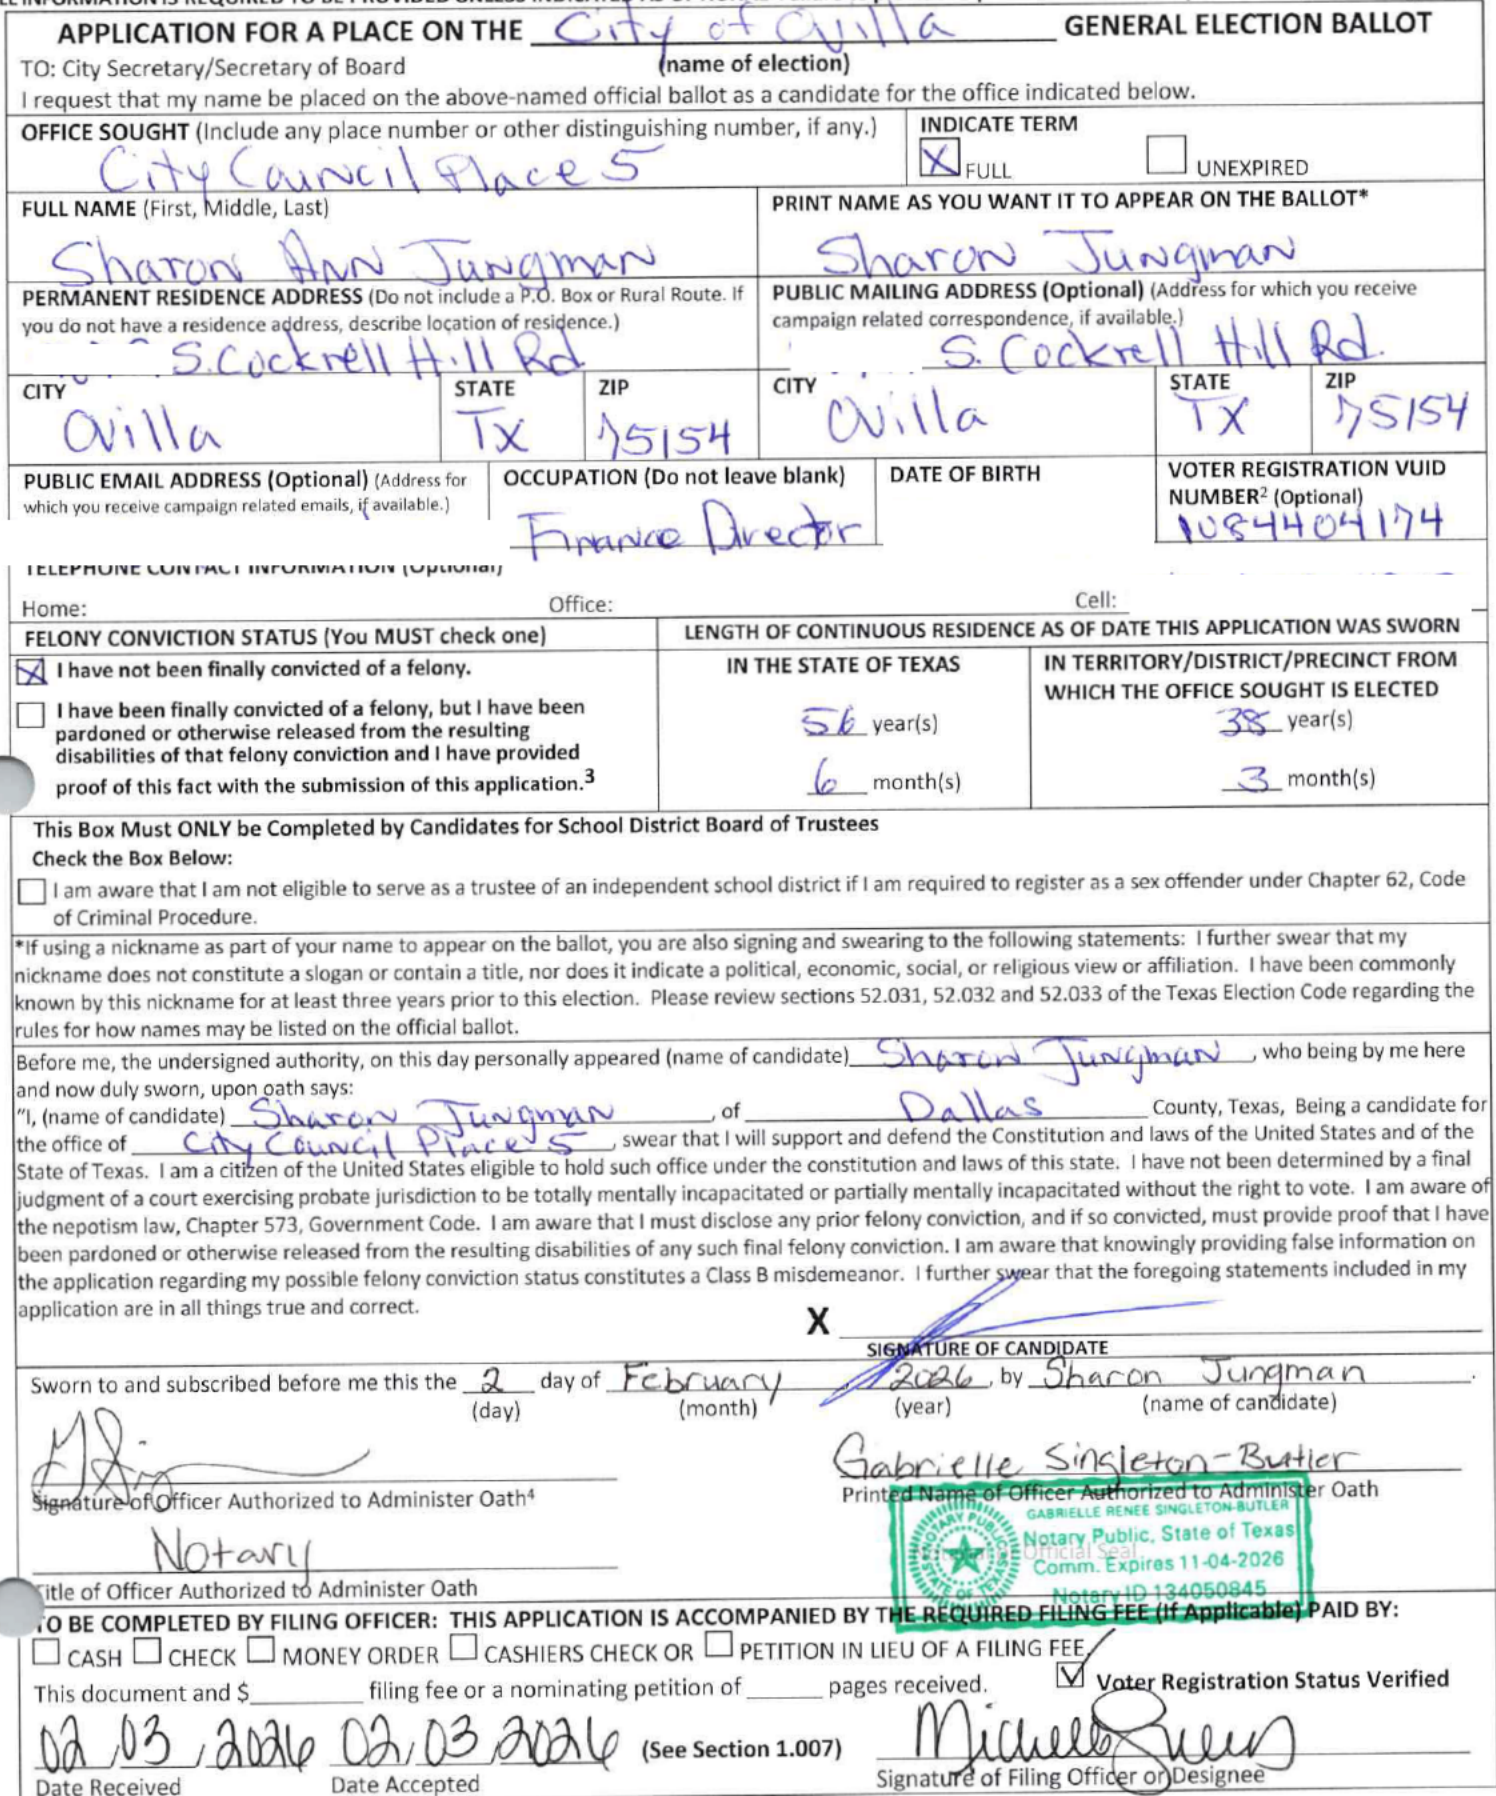 APPLICATION FOR A PLACE ON THE City of Ovilla GENERAL ELECTION BALLOT
TO: City Secretary/Secretary of Board (name of election)
I request that my name be placed on the above-named official ballot as a candidate for the office indicated below.
OFFICE SOUGHT (Include any place number or other distinguishing number, if any.)
City Council Place 5
INDICATE TERM
X FULL UNEXPIRED
FULL NAME (First, Middle, Last)
Sharon Ann Jungman
PRINT NAME AS YOU WANT IT TO APPEAR ON THE BALLOT*
Sharon Jungman
PERMANENT RESIDENCE ADDRESS (Do not include a P.O. Box or Rural Route. If
you do not have a residence address, describe location of residence.)
S. Cockrell Hill Rd
PUBLIC MAILING ADDRESS (Optional) (Address for which you receive
campaign related correspondence, if available.)
S. Cockrell Hill Rd.
CITY STATE ZIP
Ovilla TX 75154
CITY STATE ZIP
Ovilla TX 75154
PUBLIC EMAIL ADDRESS (Optional) (Address for
which you receive campaign related emails, if available.)
OCCUPATION (Do not leave blank)
Finance Director
DATE OF BIRTH
VOTER REGISTRATION VUID
NUMBER² (Optional)
1084404174
TELEPHONE CONTACT INFORMATION (Optional)
Home: Office: Cell:
FELONY CONVICTION STATUS (You MUST check one)
X I have not been finally convicted of a felony.
I have been finally convicted of a felony, but I have been
pardoned or otherwise released from the resulting
disabilities of that felony conviction and I have provided
proof of this fact with the submission of this application.³
LENGTH OF CONTINUOUS RESIDENCE AS OF DATE THIS APPLICATION WAS SWORN
IN THE STATE OF TEXAS
56 year(s)
6 month(s)
IN TERRITORY/DISTRICT/PRECINCT FROM
WHICH THE OFFICE SOUGHT IS ELECTED
38 year(s)
3 month(s)
This Box Must ONLY be Completed by Candidates for School District Board of Trustees
Check the Box Below:
I am aware that I am not eligible to serve as a trustee of an independent school district if I am required to register as a sex offender under Chapter 62, Code
of Criminal Procedure.
*If using a nickname as part of your name to appear on the ballot, you are also signing and swearing to the following statements: I further swear that my
nickname does not constitute a slogan or contain a title, nor does it indicate a political, economic, social, or religious view or affiliation. I have been commonly
known by this nickname for at least three years prior to this election. Please review sections 52.031, 52.032 and 52.033 of the Texas Election Code regarding the
rules for how names may be listed on the official ballot.
Before me, the undersigned authority, on this day personally appeared (name of candidate) Sharon Jungman, who being by me here
and now duly sworn, upon oath says:
"I, (name of candidate) Sharon Jungman, of Dallas County, Texas, Being a candidate for
the office of City Council Place 5, swear that I will support and defend the Constitution and laws of the United States and of the
State of Texas. I am a citizen of the United States eligible to hold such office under the constitution and laws of this state. I have not been determined by a final
judgment of a court exercising probate jurisdiction to be totally mentally incapacitated or partially mentally incapacitated without the right to vote. I am aware of
the nepotism law, Chapter 573, Government Code. I am aware that I must disclose any prior felony conviction, and if so convicted, must provide proof that I have
been pardoned or otherwise released from the resulting disabilities of any such final felony conviction. I am aware that knowingly providing false information on
the application regarding my possible felony conviction status constitutes a Class B misdemeanor. I further swear that the foregoing statements included in my
application are in all things true and correct.
X
SIGNATURE OF CANDIDATE
Sworn to and subscribed before me this the 2 day of February, 2026, by Sharon Jungman.
(day) (month) (year) (name of candidate)
Gabrielle Singleton-Butler
Signature of Officer Authorized to Administer Oath⁴
Printed Name of Officer Authorized to Administer Oath
Notary
Title of Officer Authorized to Administer Oath
GABRIELLE RENEE SINGLETON-BUTLER
Notary Public, State of Texas
Official Seal
Comm. Expires 11-04-2026
Notary ID 134050845
NOTARY PUBLIC
STATE OF TEXAS
TO BE COMPLETED BY FILING OFFICER: THIS APPLICATION IS ACCOMPANIED BY THE REQUIRED FILING FEE (If Applicable) PAID BY:
CASH CHECK MONEY ORDER CASHIERS CHECK OR PETITION IN LIEU OF A FILING FEE.
This document and $ filing fee or a nominating petition of pages received. Voter Registration Status Verified
02, 03, 2026 02, 03, 2026 (See Section 1.007)
Date Received Date Accepted Signature of Filing Officer or Designee